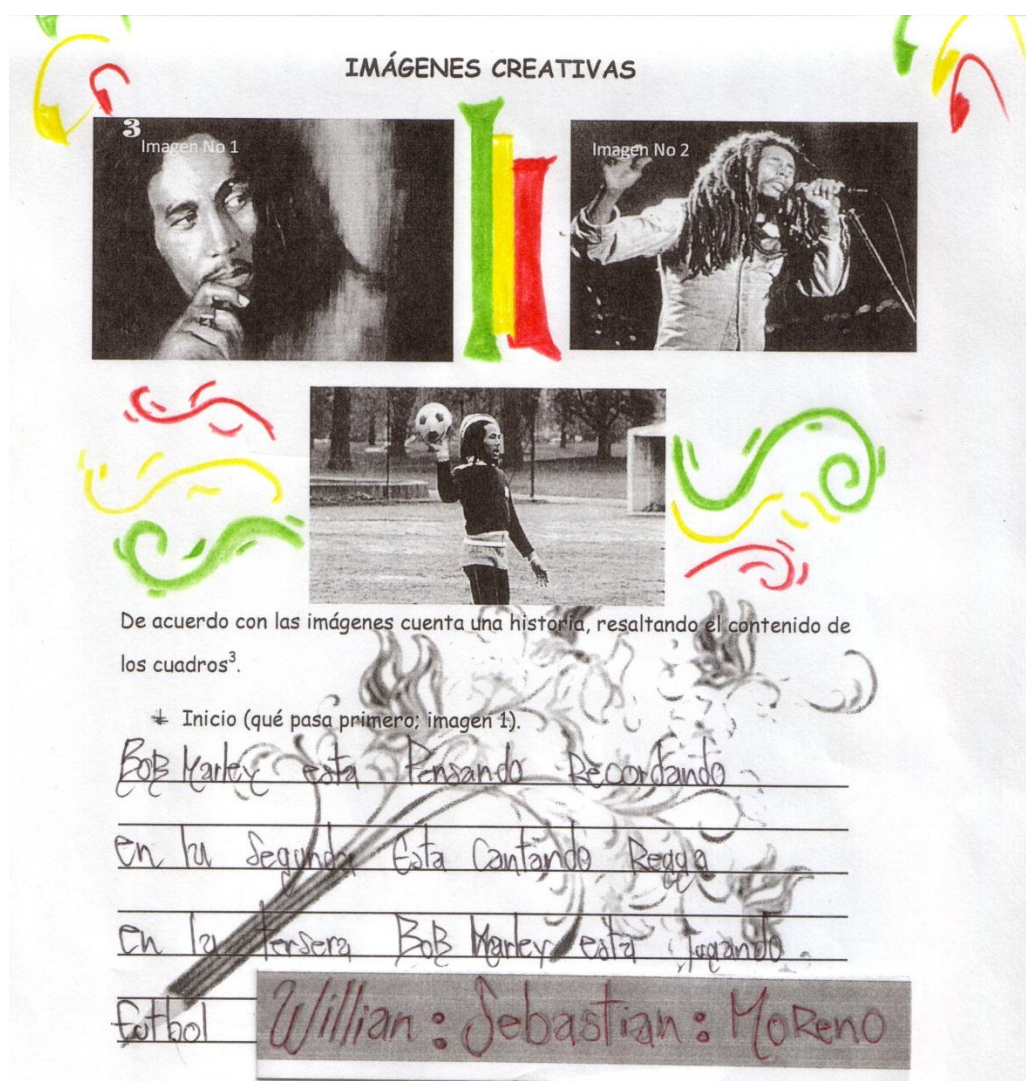 IMÁGENES CREATIVAS
3
Imagen No 1
Imagen No 2
De acuerdo con las imágenes cuenta una historia, resaltando el contenido de
los cuadros³.
Inicio (qué pasa primero; imagen 1).
BoB Marley esta Pensando Recordando
en la Segunda Esta Cantando Regga
en la tersera BoB Marley esta jugando
futbol
Willian : Sebastian : MoReno